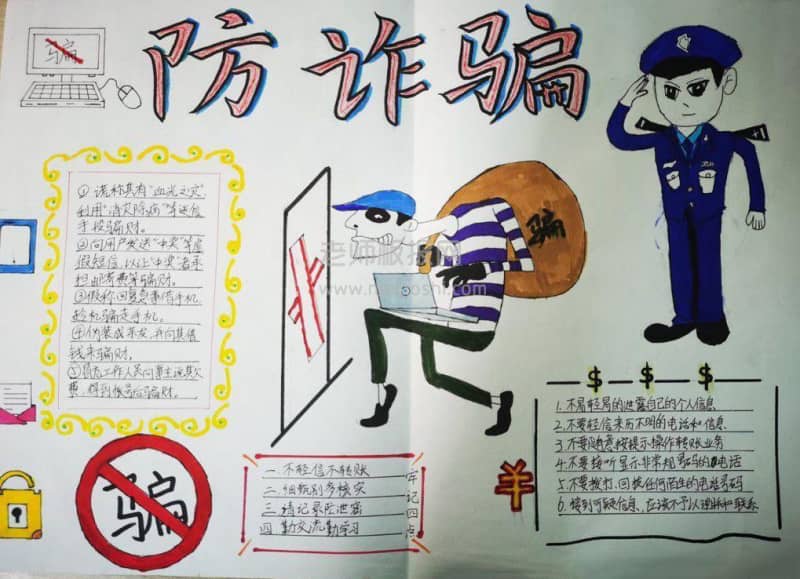 防诈骗
骗
①谎称具有“血光之灾”
利用“消灾除病”等迷信
手段骗财。
②向用户发送“中奖”等虚
假短信，以让“中奖”者承
担邮寄费等骗财。
③假称回复急事借手机
趁机骗走手机。
④伪装成亲友，并向其借
钱来骗财。
工作人员向事主说其欠
费，得到帐号后骗财。
骗
老师板报网
骗
一 不轻信不转账
二 细甄别多核实
三 清记录防泄密
四 勤交流勤学习
牢记四点
$ $ $
1.不易轻易的泄露自己的个人信息
2.不要轻信来历不明的电话和信息
3.不要随意按提示操作转账业务
4.不要接听显示非常规号码的电话
5.不要拨打、回拨任何陌生的电话号码
6.接到可疑信息，应该不予以理睬和联系